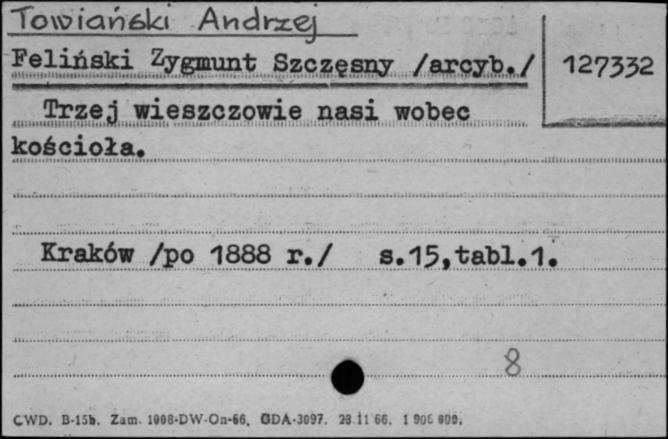 Towiański Andrzej
Feliński Zygmunt Szczęsny /arcyb./ 127332
Trzej wieszczowie nasi wobec
kościoła.
Kraków /po 1888 r./ s.15,tabl.1.
8
CWD. B-15b. Zam. 1008-DW-On-66. GDA-3097. 23.11 66. 1 906 000.